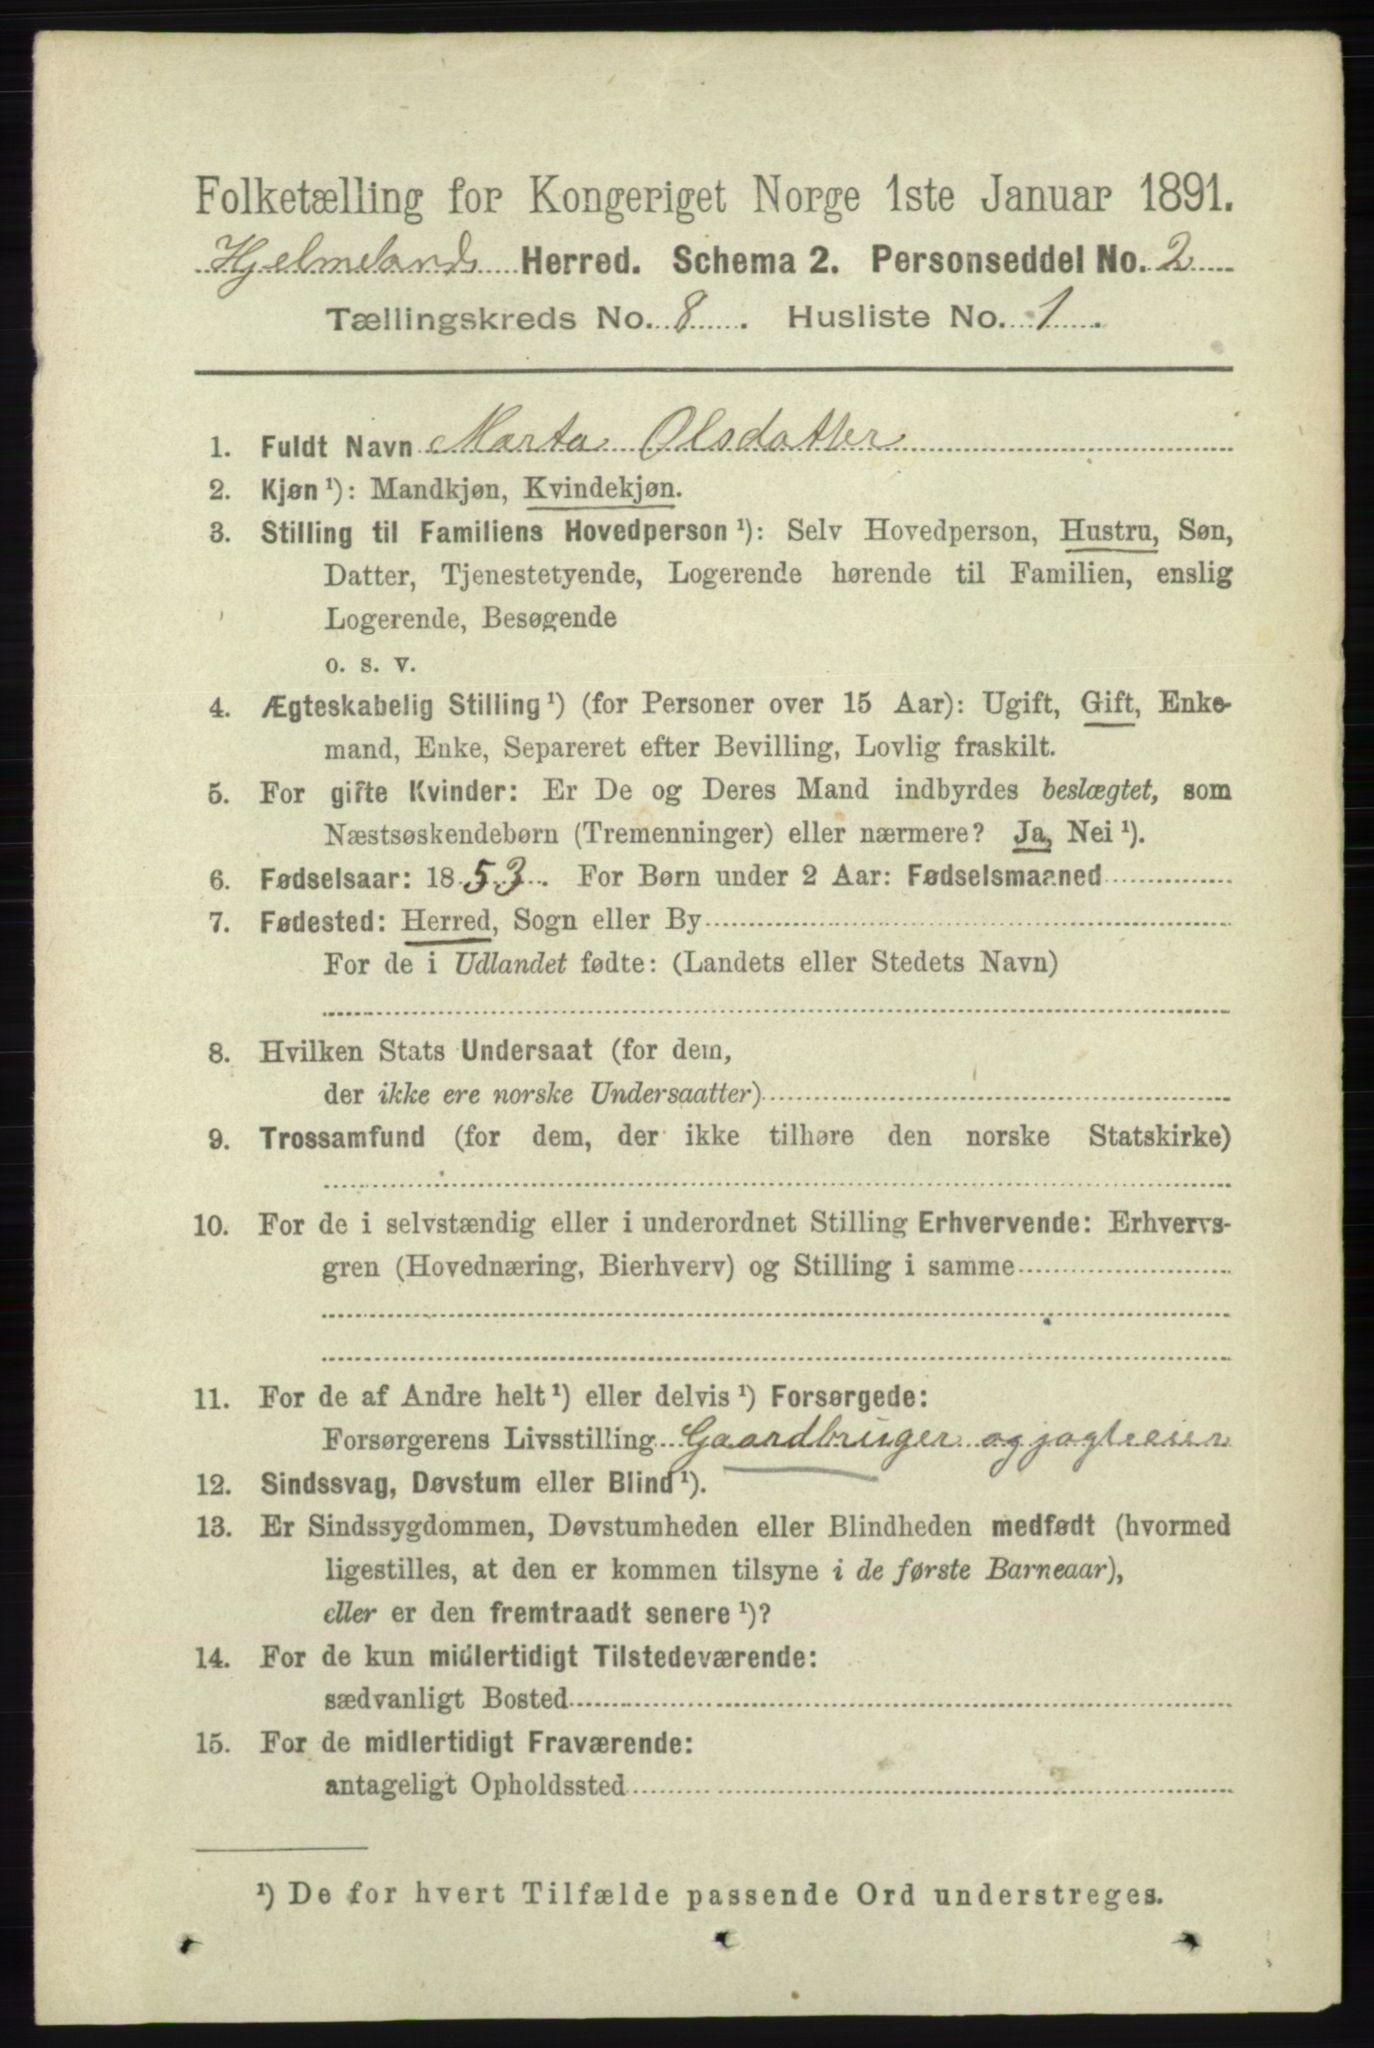 Folketælling for Kongeriget Norge 1ste Januar 1891.
Hjelmelands Herred. Schema 2. Personseddel No. 2
Tællingskreds No. 8. Husliste No. 1.
1. Fuldt Navn Marta Olsdatter
2. Kjøn ¹): Mandkjøn, Kvindekjøn.
3. Stilling til Familiens Hovedperson ¹): Selv Hovedperson, Hustru, Søn,
Datter, Tjenestetyende, Logerende hørende til Familien, enslig
Logerende, Besøgende
o. s. v.
4. Ægteskabelig Stilling ¹) (for Personer over 15 Aar): Ugift, Gift, Enke-
mand, Enke, Separeret efter Bevilling, Lovlig fraskilt.
5. For gifte Kvinder: Er De og Deres Mand indbyrdes beslægtet, som
Næstsøskendebørn (Tremenninger) eller nærmere? Ja, Nei ¹).
6. Fødselsaar: 1853. For Børn under 2 Aar: Fødselsmaaned
7. Fødested: Herred, Sogn eller By
For de i Udlandet fødte: (Landets eller Stedets Navn)
8. Hvilken Stats Undersaat (for dem,
der ikke ere norske Undersaatter)
9. Trossamfund (for dem, der ikke tilhøre den norske Statskirke)
10. For de i selvstændig eller i underordnet Stilling Erhvervende: Erhvervs-
gren (Hovednæring, Bierhverv) og Stilling i samme
11. For de af Andre helt ¹) eller delvis ¹) Forsørgede:
Forsørgerens Livsstilling Gaardbruger og jagteeier
12. Sindssvag, Døvstum eller Blind ¹).
13. Er Sindssygdommen, Døvstumheden eller Blindheden medfødt (hvormed
ligestilles, at den er kommen tilsyne i de første Barneaar),
eller er den fremtraadt senere ¹)?
14. For de kun midlertidigt Tilstedeværende:
sædvanligt Bosted
15. For de midlertidigt Fraværende:
antageligt Opholdssted
¹) De for hvert Tilfælde passende Ord understreges.